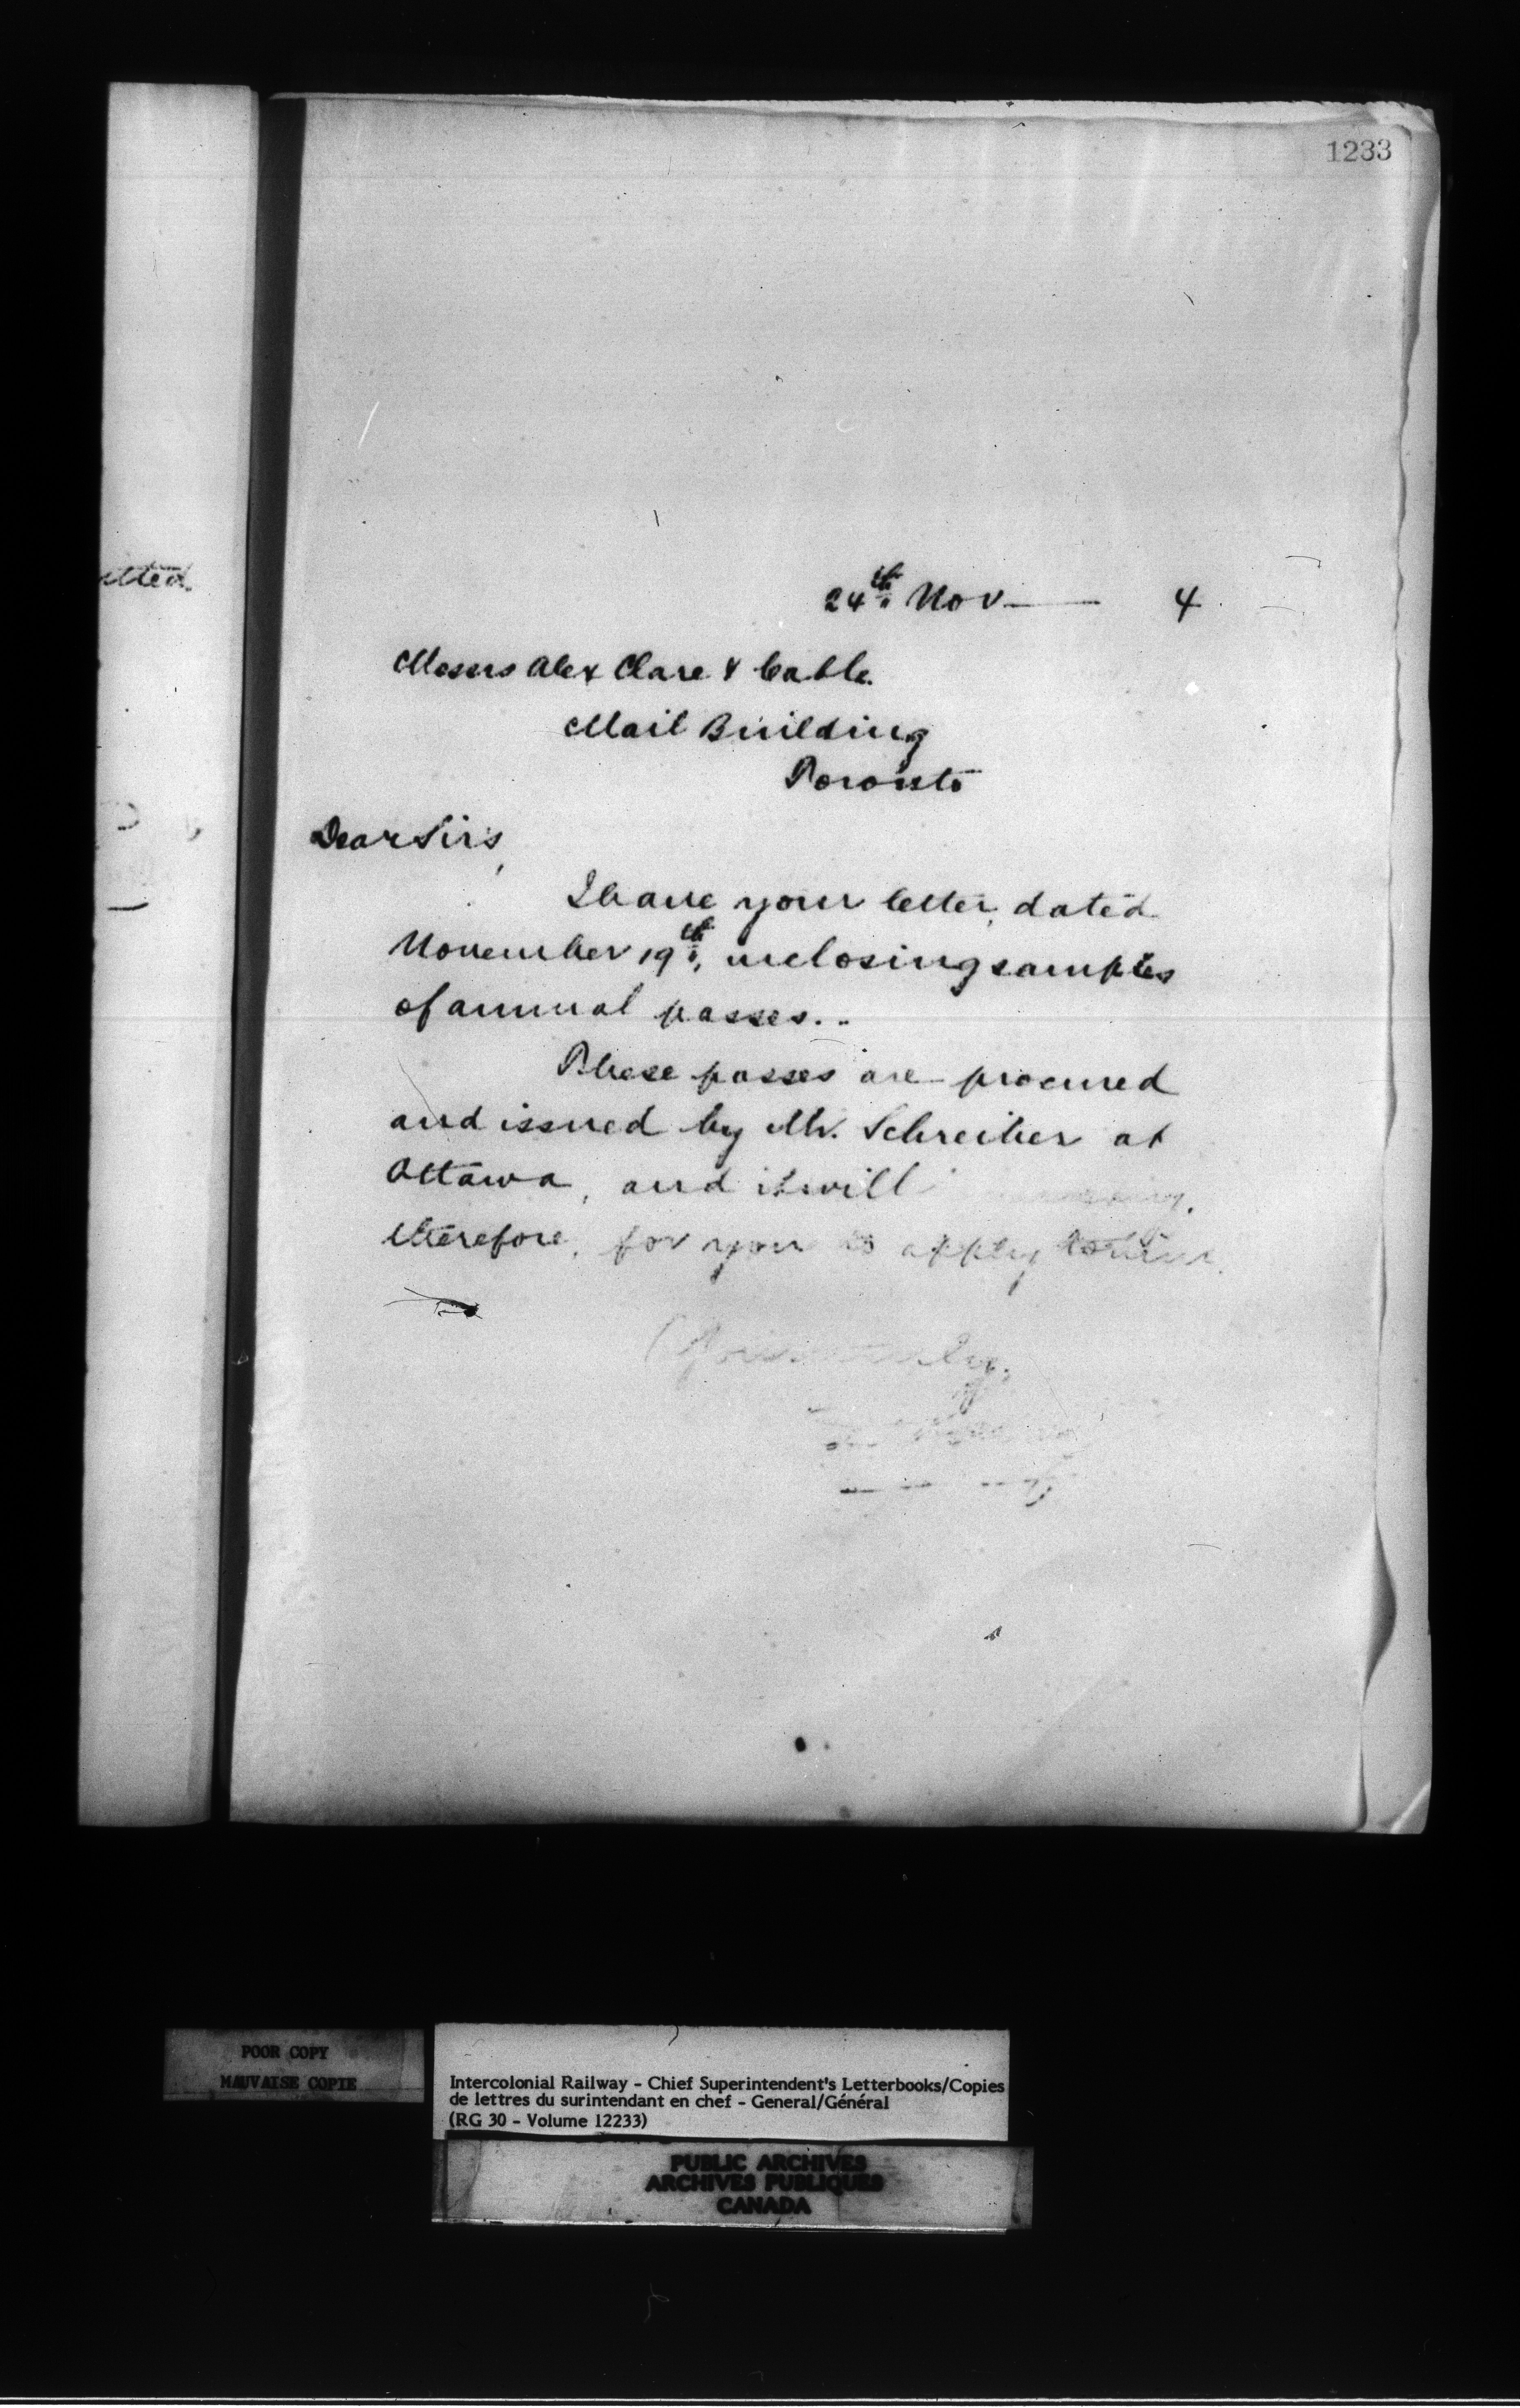 1233
etted.
24th Nov — 4
Messrs Alex Clare & Cable.
Mail Building
Toronto
Dear Sirs,
I have your letter, dated
November 19th, inclosing samples
of annual passes..
These passes are procured
and issued by Mr. Schreiber at
Ottawa, and it will
therefore, for you to apply to him.
POOR COPY
MAUVAISE COPIE
Intercolonial Railway - Chief Superintendent's Letterbooks/Copies
de lettres du surintendant en chef - General/Général
(RG 30 - Volume 12233)
PUBLIC ARCHIVES
ARCHIVES PUBLIQUES
CANADA